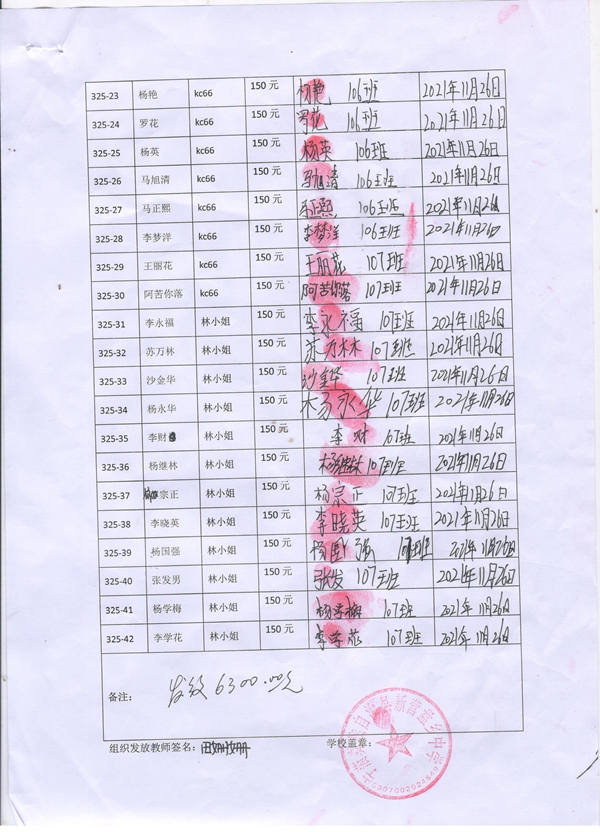 325-23 杨艳 kc66 150元 杨艳 106班 2021年11月26日
325-24 罗花 kc66 150元 罗花 106班 2021年11月26日
325-25 杨英 kc66 150元 杨英 106班 2021年11月26日
325-26 马旭清 kc66 150元 马旭清 106班 2021年11月26日
325-27 马正熙 kc66 150元 马正熙 106班 2021年11月26日
325-28 李梦洋 kc66 150元 李梦洋 106班 2021年11月26日
325-29 王丽花 kc66 150元 王丽花 107班 2021年11月26日
325-30 阿苦你落 kc66 150元 阿苦你落 107班 2021年11月26日
325-31 李永福 林小姐 150元 李永福 107班 2021年11月26日
325-32 苏万林 林小姐 150元 苏万林 107班 2021年11月26日
325-33 沙金华 林小姐 150元 沙金华 107班 2021年11月26日
325-34 杨永华 林小姐 150元 杨永华 107班 2021年11月26日
325-35 李财 林小姐 150元 李财 107班 2021年11月26日
325-36 杨继林 林小姐 150元 杨继林 107班 2021年11月26日
325-37 宗正 林小姐 150元 杨宗正 107班 2021年11月26日
325-38 李晓英 林小姐 150元 李晓英 107班 2021年11月26日
325-39 杨国强 林小姐 150元 杨国强 107班 2021年11月26日
325-40 张发男 林小姐 150元 张发 107班 2021年11月26日
325-41 杨学梅 林小姐 150元 杨学梅 107班 2021年11月26日
325-42 李学花 林小姐 150元 李学花 107班 2021年11月26日
备注： 发放6300.00元
组织发放教师签名： 学校盖章：